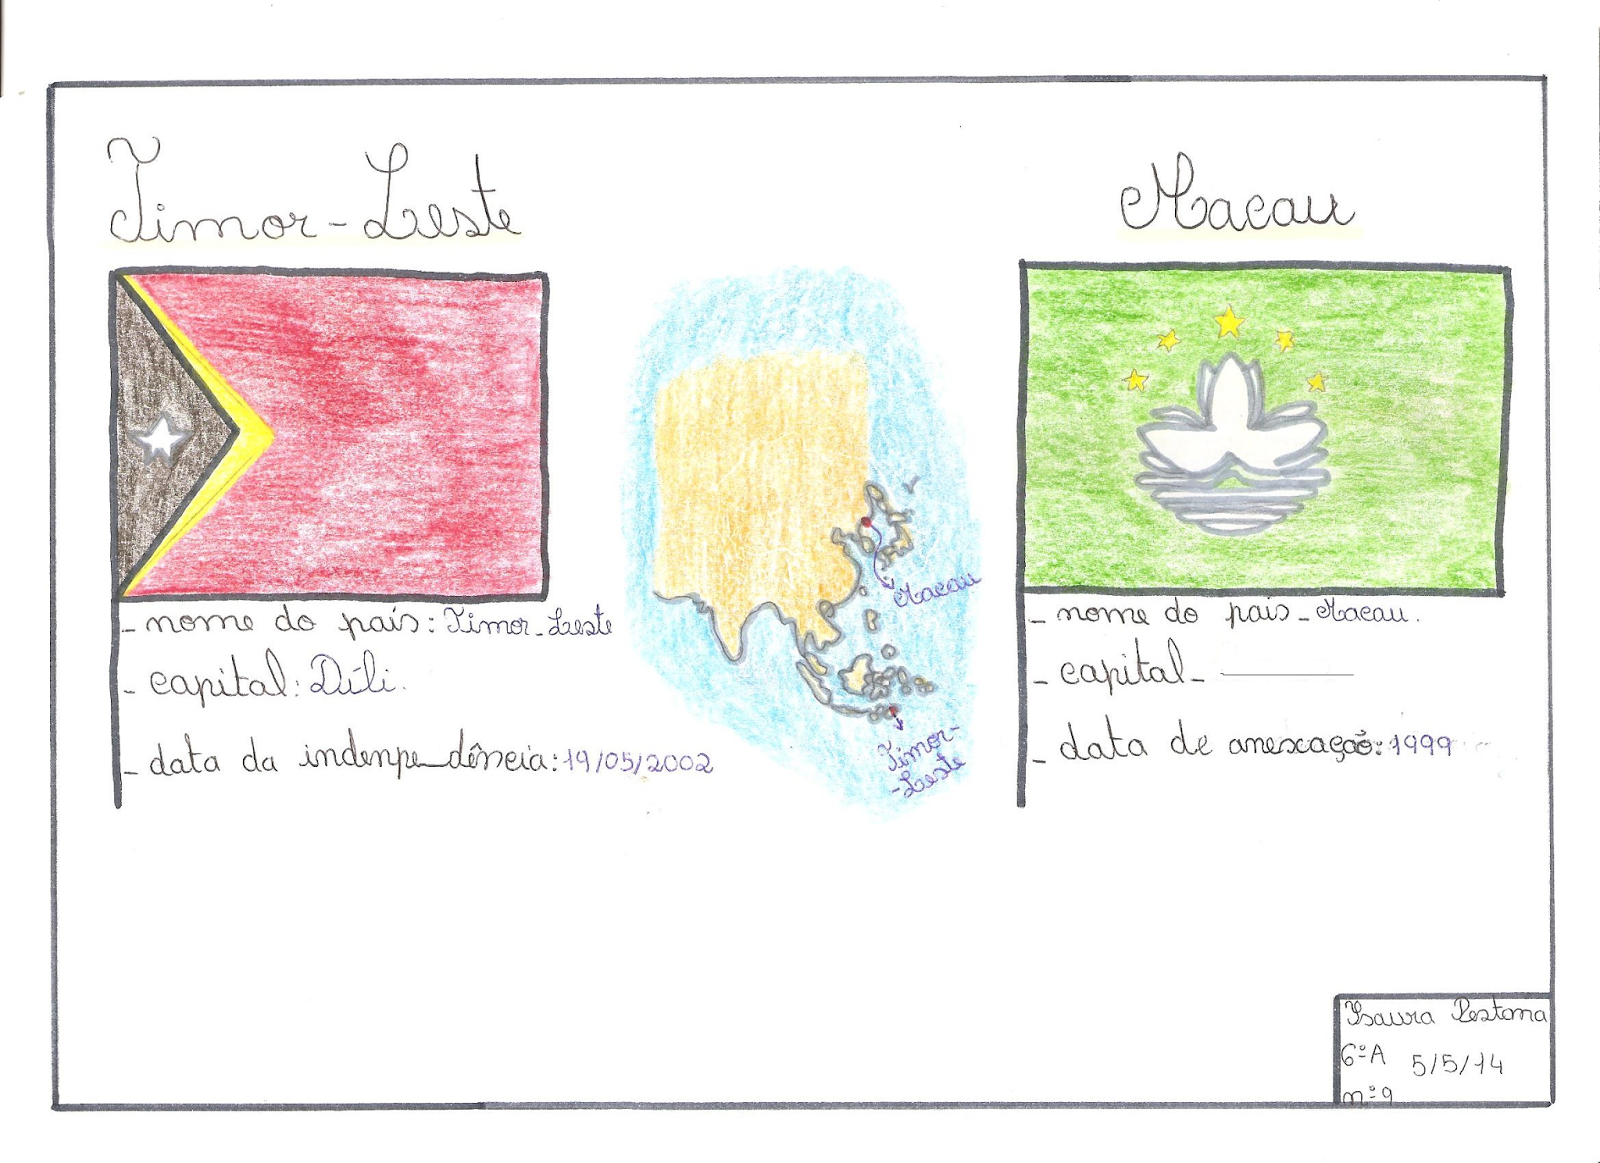 Timor-Leste
- nome do país: Timor-Leste
- capital: Díli.
- data da indenpe_dência: 19/05/2002
Macau
Timor-
-Leste
Macau
- nome do país - Macau.
- capital -
- data de anexação: 1999
Isaura Pestana
6ºA 5/5/14
nº9